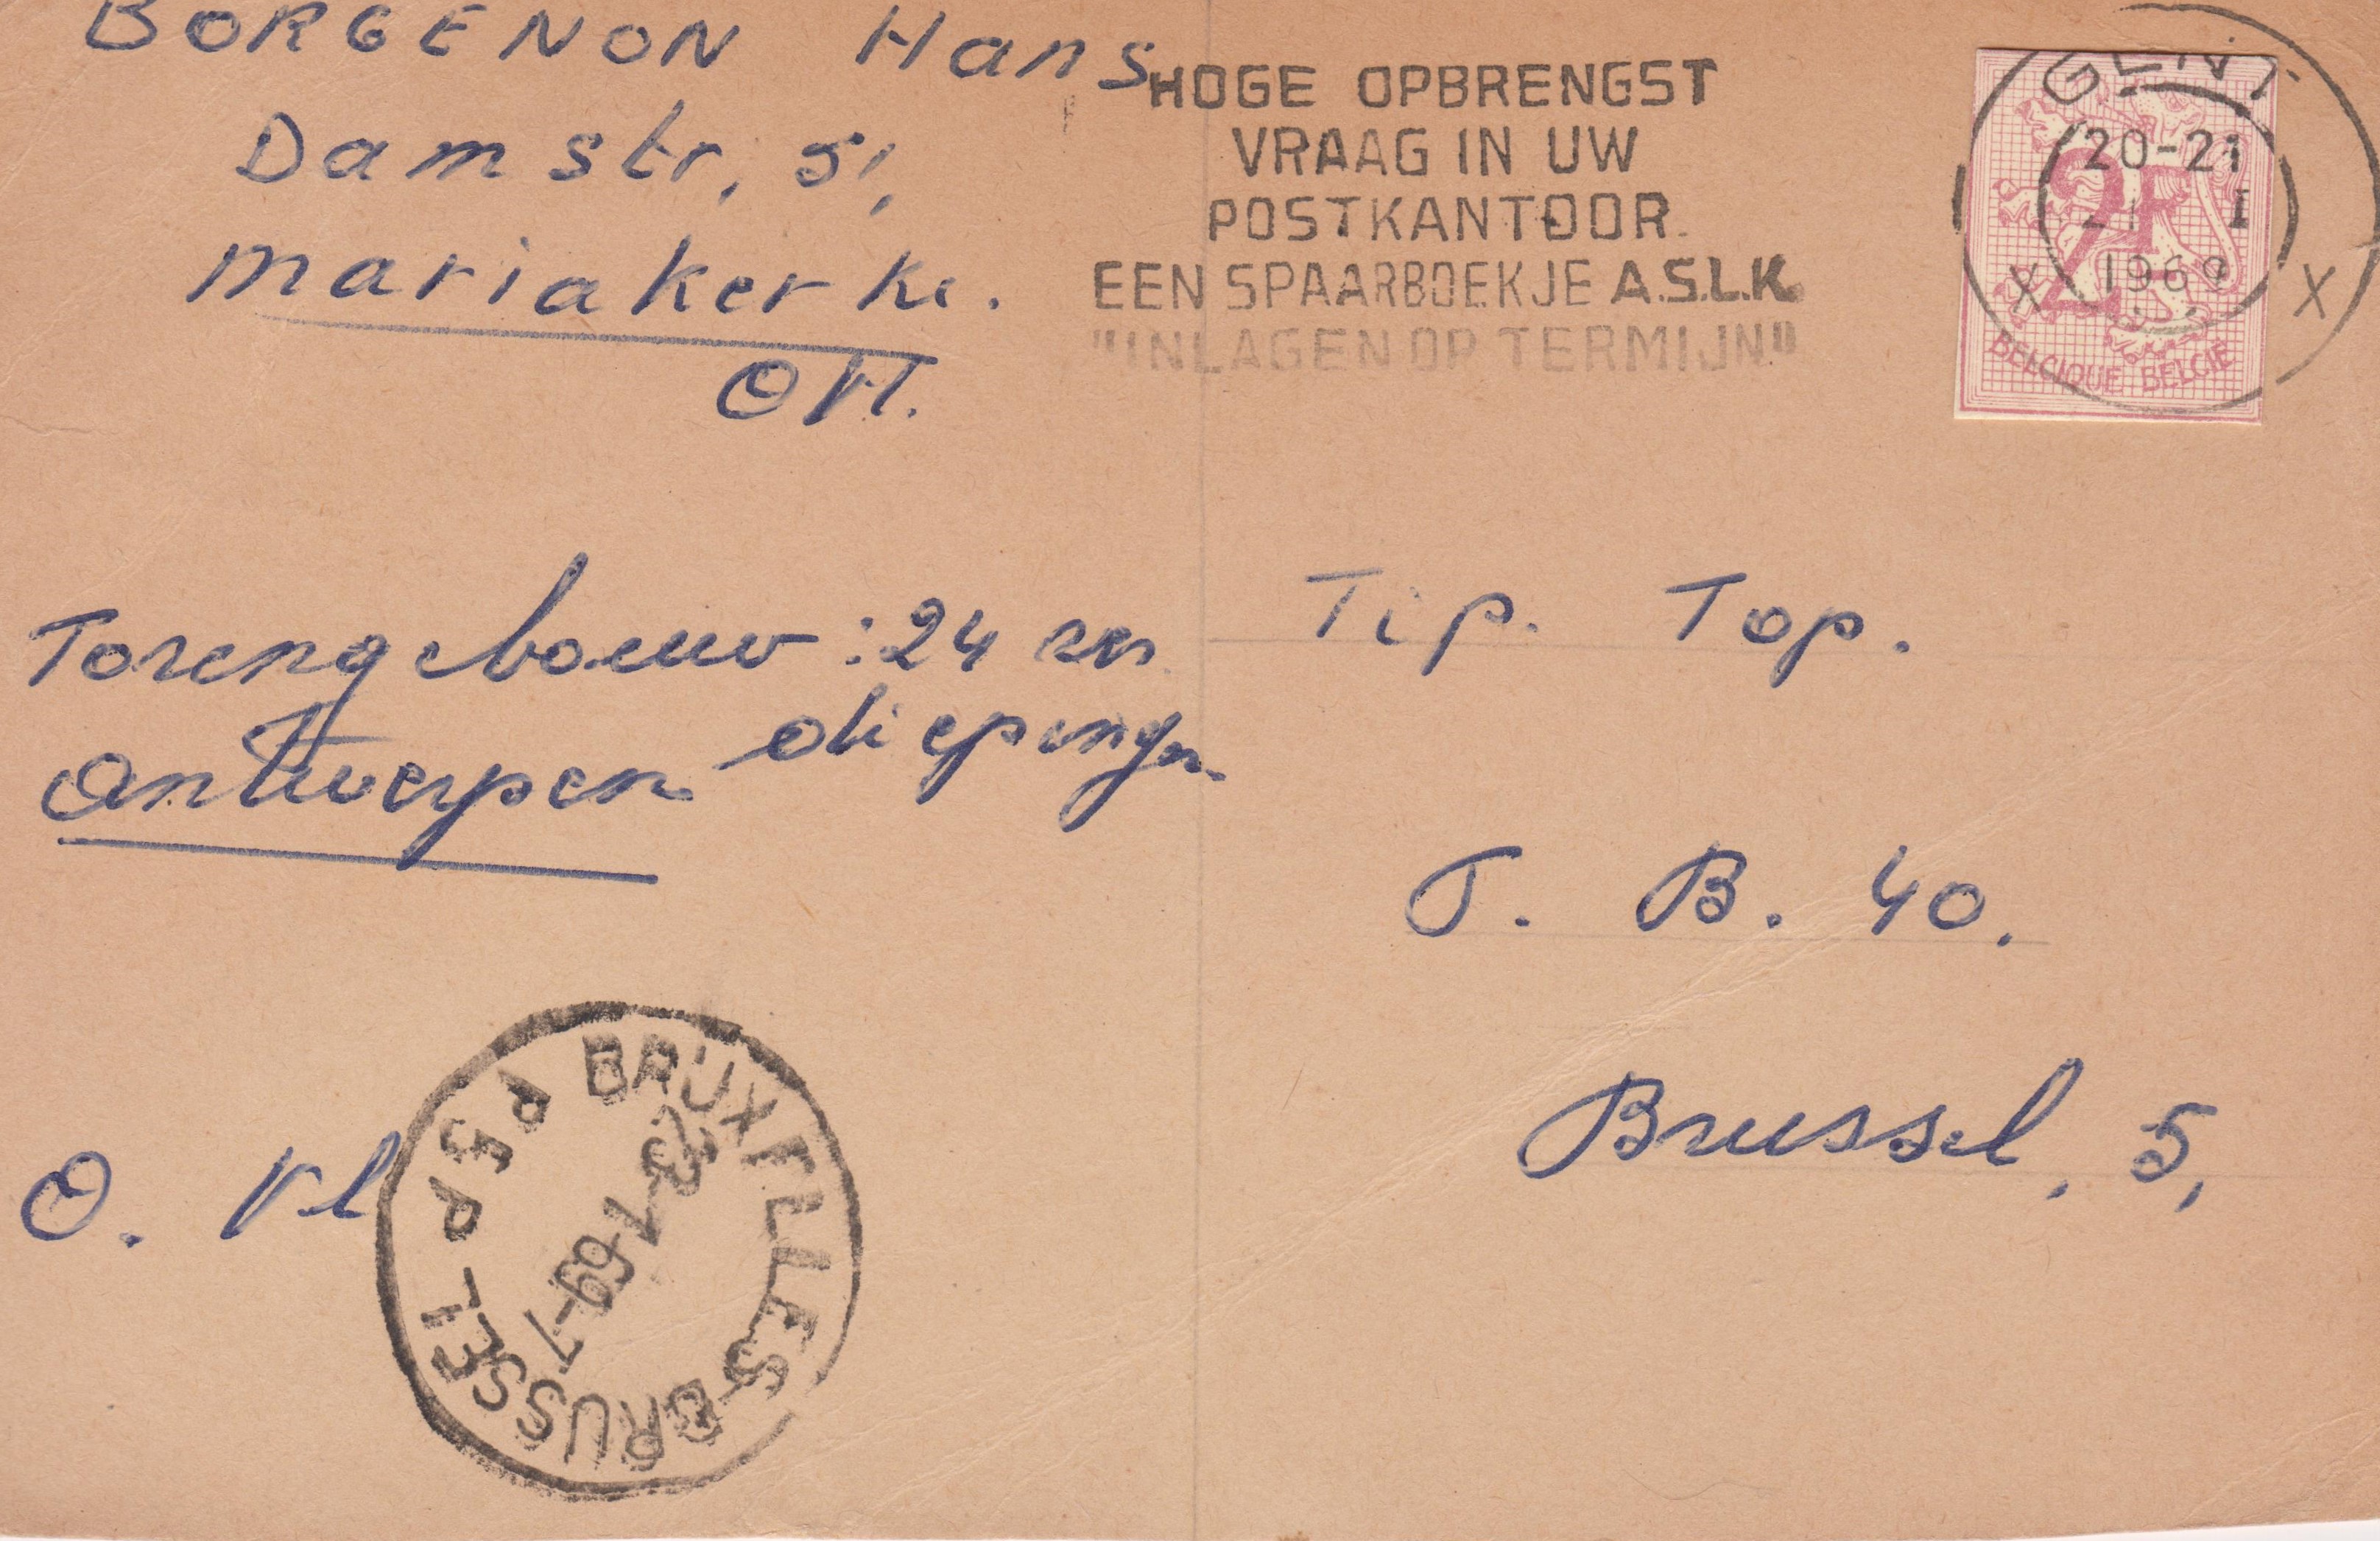 BORGENON Hans
Damstr, 51,
Mariakerke.
OVl.
HOGE OPBRENGST
VRAAG IN UW
POSTKANTOOR
EEN SPAARBOEKJE A.S.L.K.
"INLAGEN OP TERMIJN"
GENT
20-21
21 I
1969
X X
2F
BELGIQUE BELGIE
Torengebouw : 24 
Antwerpen
O. Vl
Tip. Top.
T. B. 40.
Brussel, 5,
BRUXELLES
BRUSSEL
7-69-7